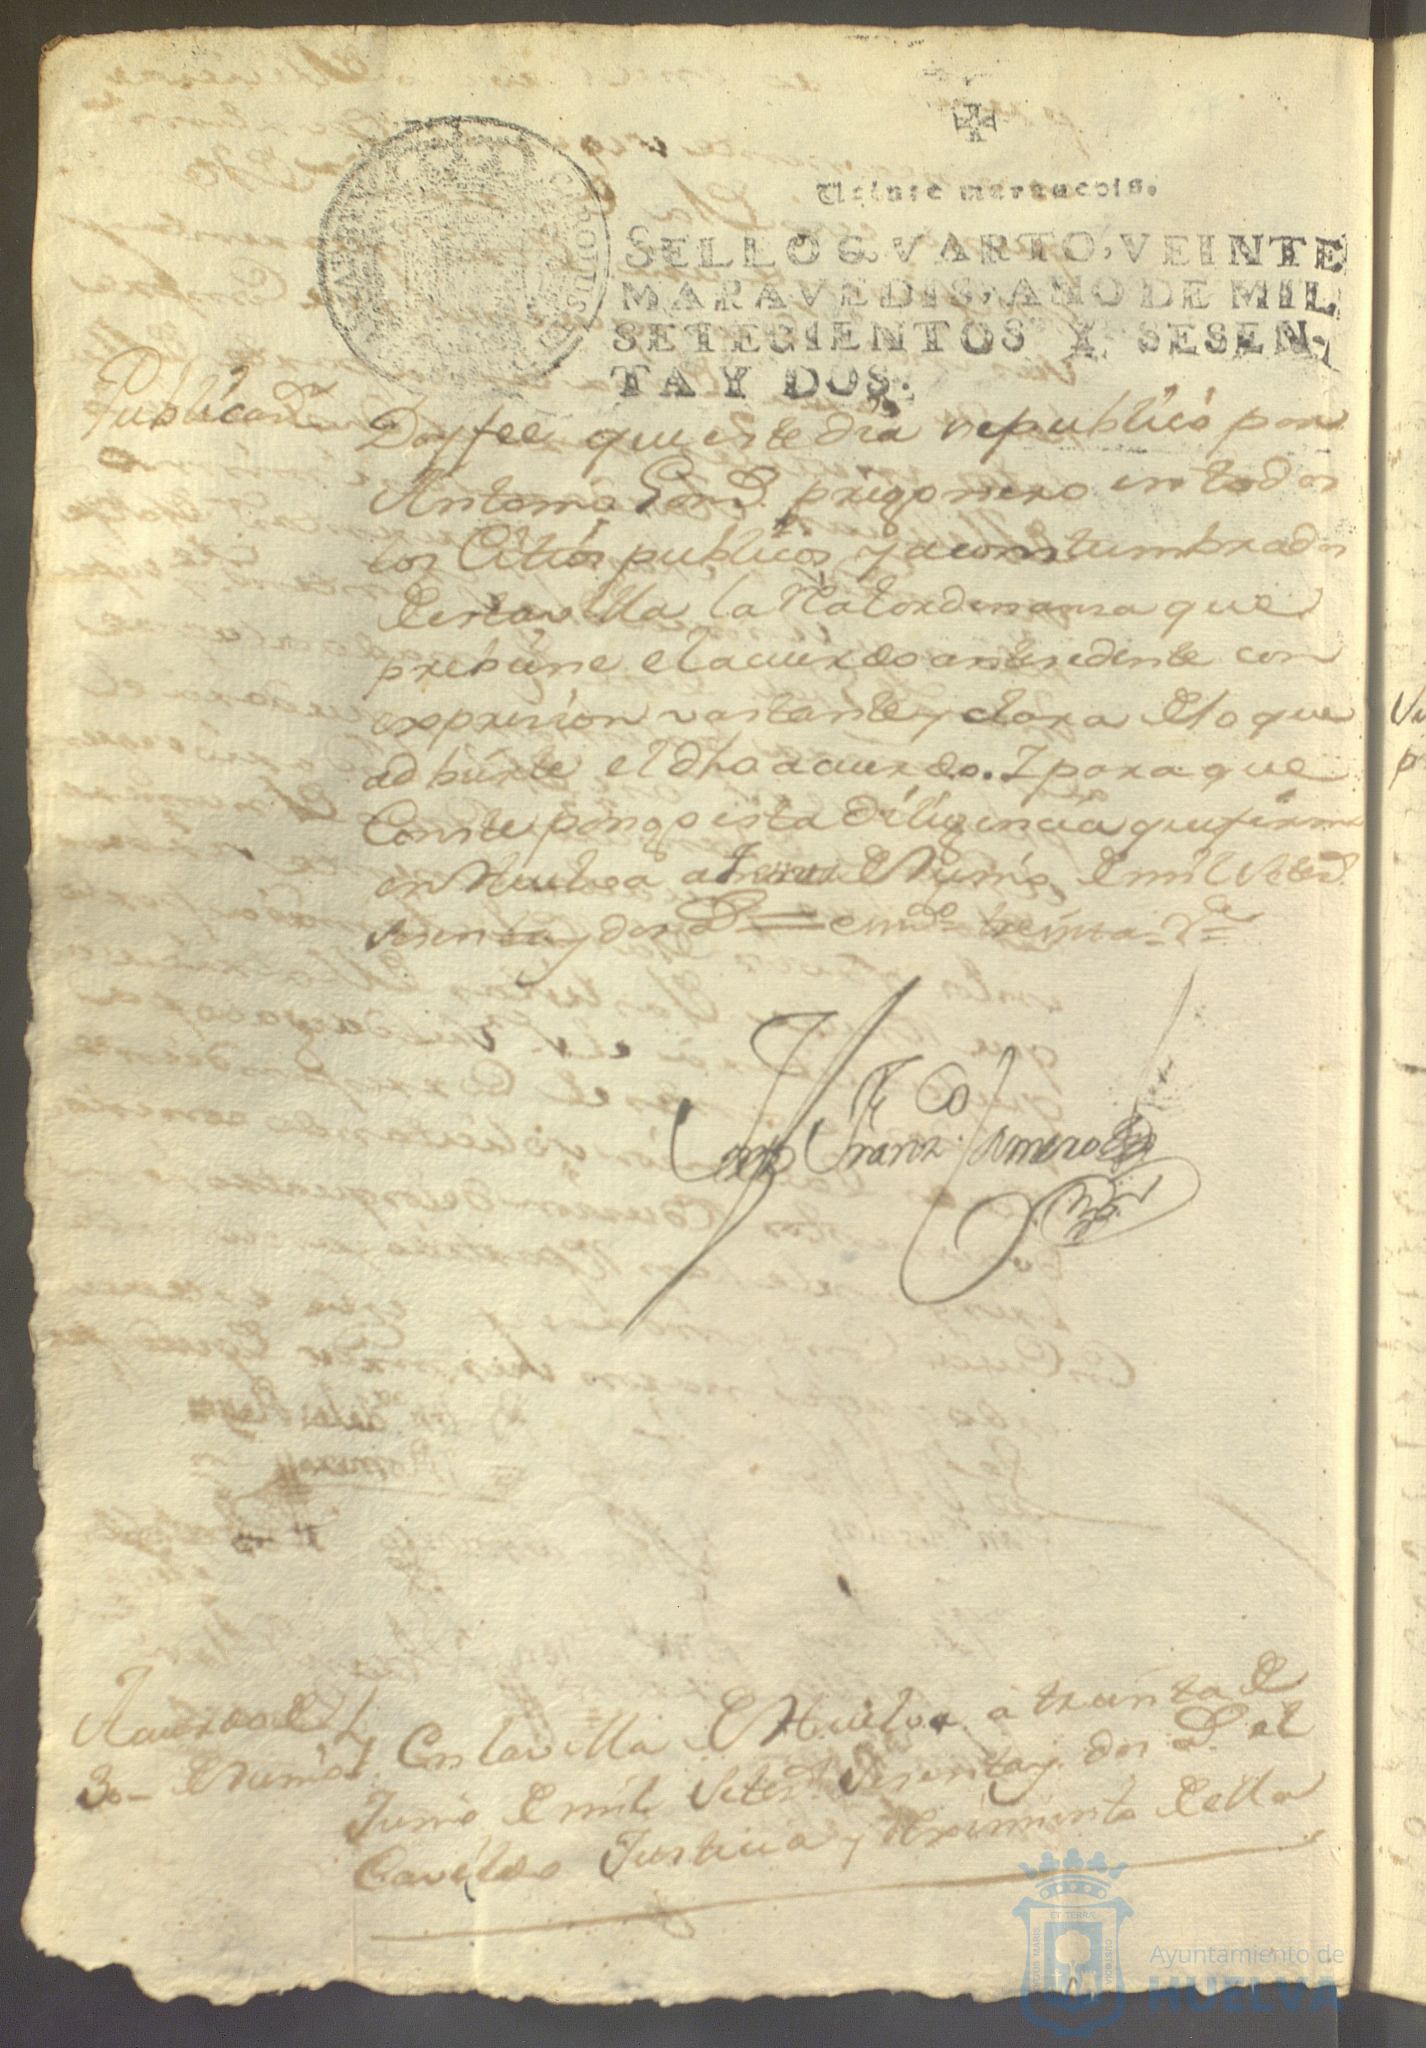 Veinte maravedis.
SELLO QVARTO, VEINTE
MARAVEDIS, AÑO DE MIL
SETECIENTOS Y SESEN-
TA Y DOS.
Publicaon
Doy fee que este dia se publicó por
Antonio Gonz. pregonero en todos
los Citios publicos y acostumbrados
de esta villa la Rl ordenanza que
prebiene el acuerdo antesedente con
expresion vastante y clara de lo que
adbierte el dho acuerdo. I para que
Conste pongo esta diligencia que firme
en Huelva a treinta de Junio de mil seted.
sesenta y dos = emdo treinta = Ve =
Franz.co Romero
Acuerdo de
30 de Junio
En la villa de Huelva a treinta de
Junio de mil seted. sesenta y dos el
Cavildo Justicia y Reximiento de ella
ET TERRÆ
CUSTODIA
Ayuntamiento de
HUELVA